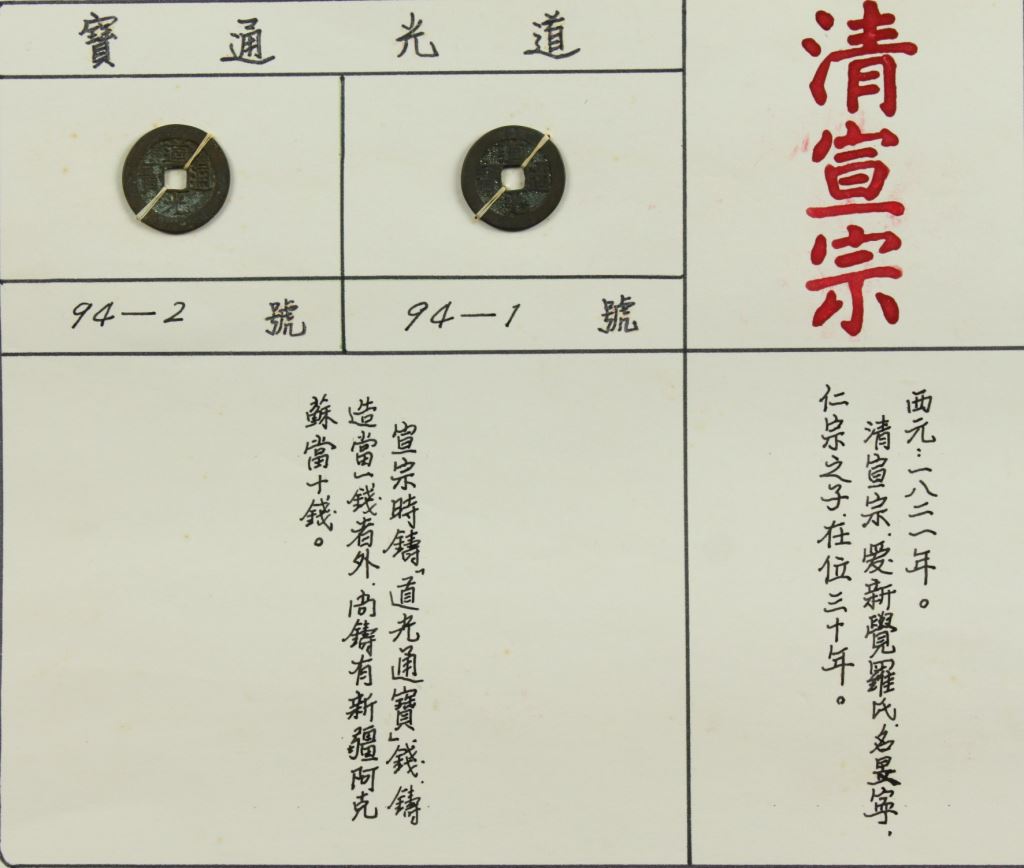 清宣宗
西元：一八二一年。
清宣宗，愛新覺羅氏，名旻寧，
仁宗之子，在位三十年。
道光通寶
94－1 號
94－2 號
宣宗時鑄「道光通寶」錢，鑄
造當一錢者外，尚鑄有新疆阿克
蘇當十錢。